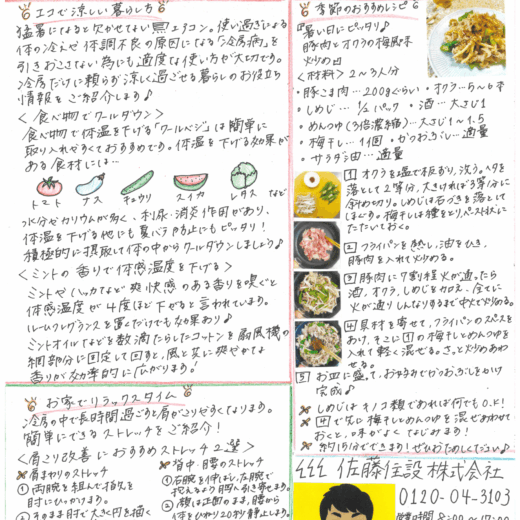 エコで涼しい暮らし方
猛暑になると欠かせないエアコン。使い過ぎによる
体の冷えや体調不良の原因になる「冷房病」を
引きおこさない為にも適度な使い方が大切です。
冷房だけに頼らず涼しく過ごせる暮らしのお役立ち
情報をご紹介します♪
<食べ物でクールダウン>
食べ物で体温を下げる「クールベジ」は簡単に
取り入れやすくておすすめです。体温を下げる効果が
ある食材には…
トマト ナス キュウリ スイカ レタス など
水分やカリウムが多く、利尿・消炎作用があり、
体温を下げる他にも夏バテ防止にもピッタリ!
積極的に摂取して体の中からクールダウンしましょう♪
<ミントの香りで体感温度を下げる>
ミントやハッカなど爽快感のある香りを嗅ぐと
体感温度が4度ほど下がると言われています。
ルームフレグランスを置くだけでも効果あり♪
ミントオイルなどを数滴たらしたコットンを扇風機の
網部分に固定して回すと、風と共に爽やかな
香りが効率的に広がります!
お家でリラックスタイム
冷房の中で長時間過ごすと肩がこりやすくなります。
簡単にできるストレッチをご紹介!
<肩こり改善におすすめストレッチ2選>
肩まわりのストレッチ
①両腕を組んで指先を
肘にひっかけます。
②そのまま肘で大きく円を描く
背中・腰のストレッチ
①右腕を伸ばし、左腕で
抱えるよう胸へ引き寄せます。
②顔は正面のまま、腰から
体をひねり20秒静止しましょう。
季節のおすすめレシピ
『暑い日にピッタリ♪
豚肉とオクラの梅風味
炒め』
<材料> 2〜3人分
・豚こま肉…200gぐらい ・オクラ…5〜6本
・しめじ…1/2パック ・酒…大さじ1
・めんつゆ(3倍濃縮)…大さじ1〜1.5
・梅干し…1個 ・かつおぶし…適量
・サラダ油…適量
1 オクラを塩で板ずり、洗う。ヘタを
落として2等分、大きければ3等分に
斜め切り。しめじは石づきを落として
ほぐす。梅干しは種をとりペースト状に
たたいておく。
2 フライパンを熱し、油をひき、
豚肉を入れて炒める。
3 豚肉に9割程火が通ったら
酒、オクラ、しめじを加え、全てに
火が通りしんなりするまで中火で炒める。
4 具材を寄せて、フライパンのスペースを
あけ、そこに1の梅干しとめんつゆを
入れて軽く混ぜる。さっと炒めあわ
せる。
5 お皿に盛って、お好みでかつおぶしをかけ
完成♪
しめじはキノコ類であれば何でもO.K!
4で先に梅干しとめんつゆを混ぜあわせて
おくと、味がよくなじみます!
約15分でできます!ぜひおためしください♪
佐藤住設株式会社
0120-04-3103
8:00〜17:00